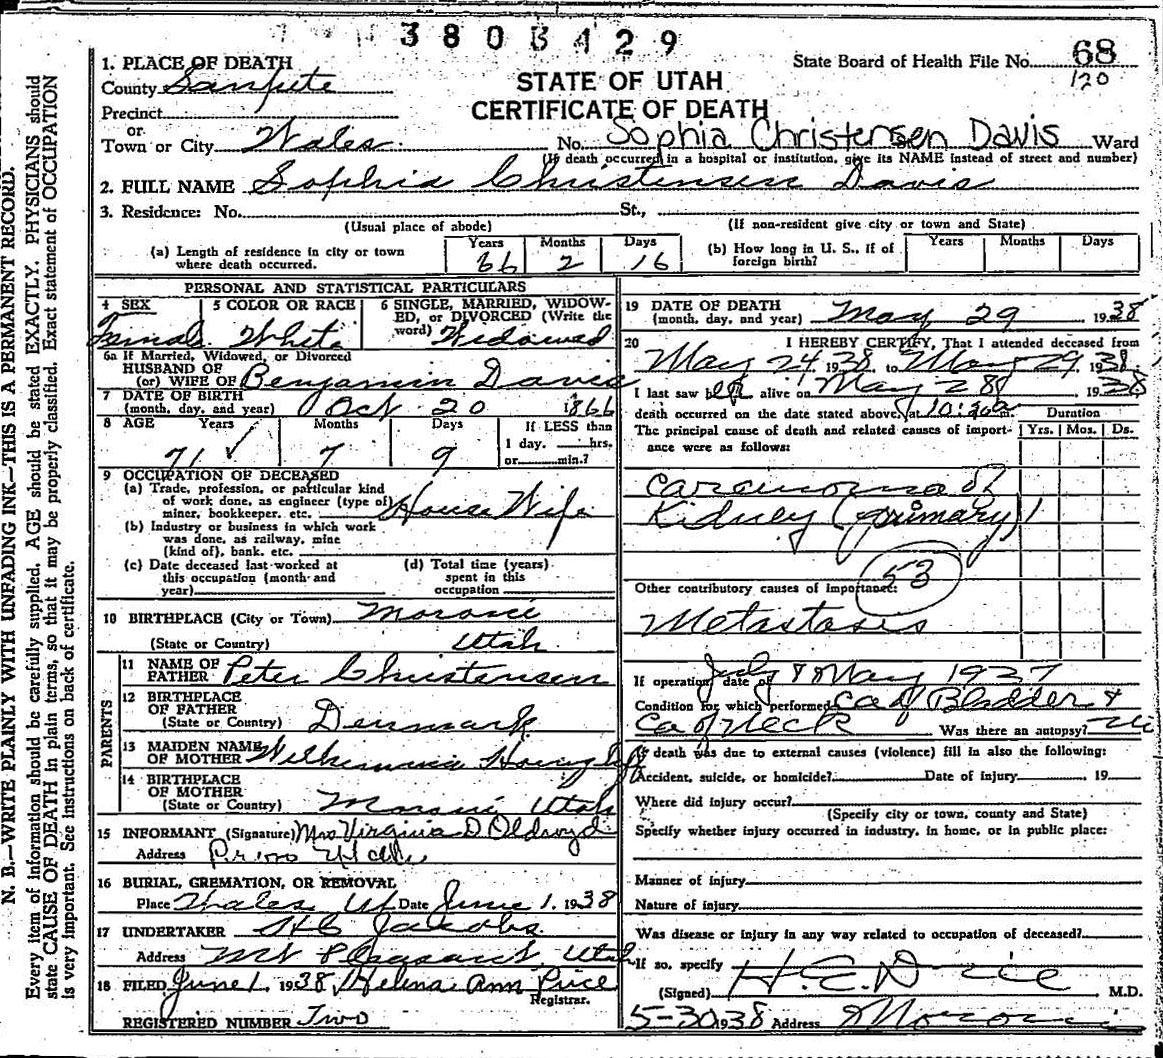 380B429
State Board of Health File No. 68
120
STATE OF UTAH
CERTIFICATE OF DEATH
N. B.—WRITE PLAINLY WITH UNFADING INK—THIS IS A PERMANENT RECORD.
Every item of information should be carefully supplied. AGE should be stated EXACTLY. PHYSICIANS should
state CAUSE OF DEATH in plain terms, so that it may be properly classified. Exact statement of OCCUPATION
is very important. See instructions on back of certificate.
1. PLACE OF DEATH
County Sanpete
Precinct
or
Town or City Wales. No. Sophia Christensen Davis Ward
(If death occurred in a hospital or institution, give its NAME instead of street and number)
2. FULL NAME Sophia Christensen Davis
3. Residence: No. St.,
(Usual place of abode) (If non-resident give city or town and State)
(a) Length of residence in city or town where death occurred. Years 66 Months 2 Days 16
(b) How long in U. S., if of foreign birth? Years Months Days
PERSONAL AND STATISTICAL PARTICULARS
4 SEX Female
5 COLOR OR RACE White
6 SINGLE, MARRIED, WIDOWED, or DIVORCED (Write the word) Widowed
6a If Married, Widowed, or Divorced
HUSBAND OF
(or) WIFE OF Benjamin Davis
7 DATE OF BIRTH
(month, day, and year) Oct 20 1866
8 AGE Years 71 Months 7 Days 9
If LESS than
1 day. hrs.
or min.?
9 OCCUPATION OF DECEASED
(a) Trade, profession, or particular kind
of work done, as engineer (type of)
miner, bookkeeper, etc. House Wife
(b) Industry or business in which work
was done, as railway, mine
(kind of), bank, etc.
(c) Date deceased last worked at
this occupation (month and
year)
(d) Total time (years)
spent in this
occupation
10 BIRTHPLACE (City or Town) Moroni
(State or Country) Utah
PARENTS
11 NAME OF
FATHER Peter Christensen
12 BIRTHPLACE
OF FATHER
(State or Country) Denmark
13 MAIDEN NAME
OF MOTHER
14 BIRTHPLACE
OF MOTHER
(State or Country) Moroni Utah
15 INFORMANT (Signature) Mrs Virginia D Oldroyd
Address Provo Utah
16 BURIAL, CREMATION, OR REMOVAL
Place Wales Ut Date June 1. 1938
17 UNDERTAKER Jacobs
Address Mt Pleasant, Utah
18 FILED June 1. 1938 Helena Ann Price
Registrar.
REGISTERED NUMBER Two
19 DATE OF DEATH
(month, day, and year) May 29 1938
20 I HEREBY CERTIFY, That I attended deceased from
May 24 1938 to May 29 1938
I last saw her alive on May 28 1938
death occurred on the date stated above, at 10:20 a m. Duration
The principal cause of death and related causes of importance were as follows: Yrs. Mos. Ds.
Carcinoma of
Kidney (primary) 1
53
Other contributory causes of importance:
Metastasis
If operation, date of July & May 1937
Condition for which performed Ca of Bladder &
Ca of Neck Was there an autopsy? no
If death was due to external causes (violence) fill in also the following:
Accident, suicide, or homicide? Date of injury 19
Where did injury occur?
(Specify city or town, county and State)
Specify whether injury occurred in industry, in home, or in public place:
Manner of injury
Nature of injury
Was disease or injury in any way related to occupation of deceased?
If so, specify
(Signed) M.D.
5-30 1938 Address Moroni